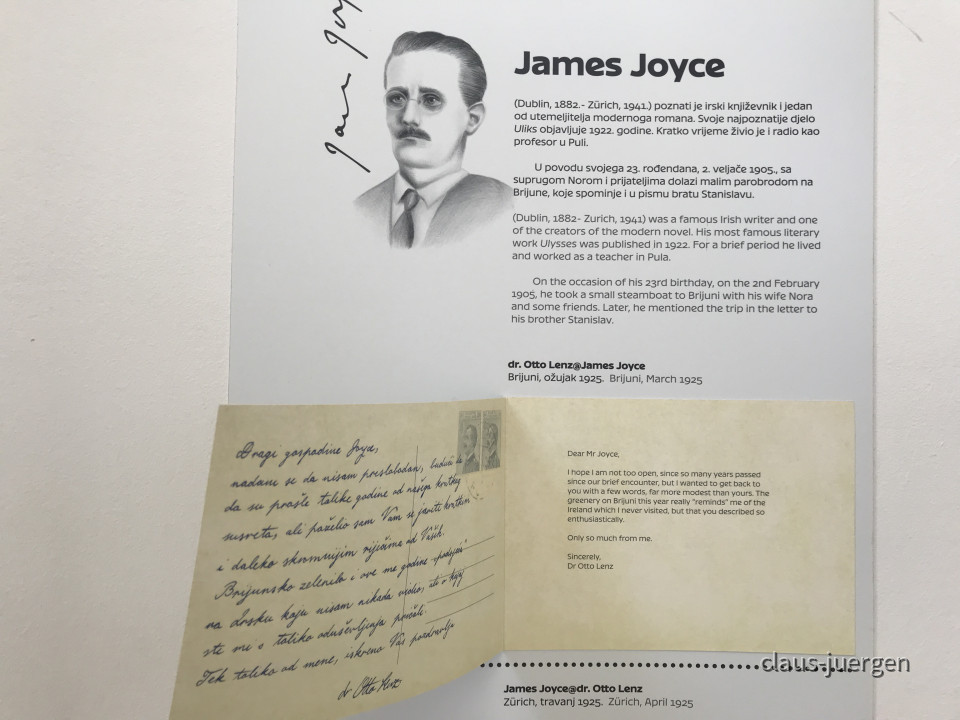 James Joyce
(Dublin, 1882.- Zürich, 1941.) poznati je irski književnik i jedan
od utemeljitelja modernoga romana. Svoje najpoznatije djelo
Uliks objavljuje 1922. godine. Kratko vrijeme živio je i radio kao
profesor u Puli.
U povodu svojega 23. rođendana, 2. veljače 1905., sa
suprugom Norom i prijateljima dolazi malim parobrodom na
Brijune, koje spominje i u pismu bratu Stanislavu.
(Dublin, 1882- Zurich, 1941) was a famous Irish writer and one
of the creators of the modern novel. His most famous literary
work Ulysses was published in 1922. For a brief period he lived
and worked as a teacher in Pula.
On the occasion of his 23rd birthday, on the 2nd February
1905, he took a small steamboat to Brijuni with his wife Nora
and some friends. Later, he mentioned the trip in the letter to
his brother Stanislav.
dr. Otto Lenz@James Joyce
Brijuni, ožujak 1925. Brijuni, March 1925
Dragi gospodine Joyce,
nadam se da nisam preslobodan, budući da
da su prošle tolike godine od našega kratkog
susreta, ali poželio sam Vam se javiti kratkim
i daleko skromnijim riječima od Vaših.
Brijunsko zelenilo i ove me godine "podsjeća"
na Irsku koju nisam nikada vidio, ali o kojoj
ste mi s toliko oduševljenja pričali.
Tek toliko od mene, iskreno Vas pozdravlja
dr Otto Lenz
Dear Mr Joyce,
I hope I am not too open, since so many years passed
since our brief encounter, but I wanted to get back to
you with a few words, far more modest than yours. The
greenery on Brijuni this year really "reminds" me of the
Ireland which I never visited, but that you described so
enthusiastically.
Only so much from me.
Sincerely,
Dr Otto Lenz
claus-juergen
James Joyce@dr. Otto Lenz
Zürich, travanj 1925. Zürich, April 1925